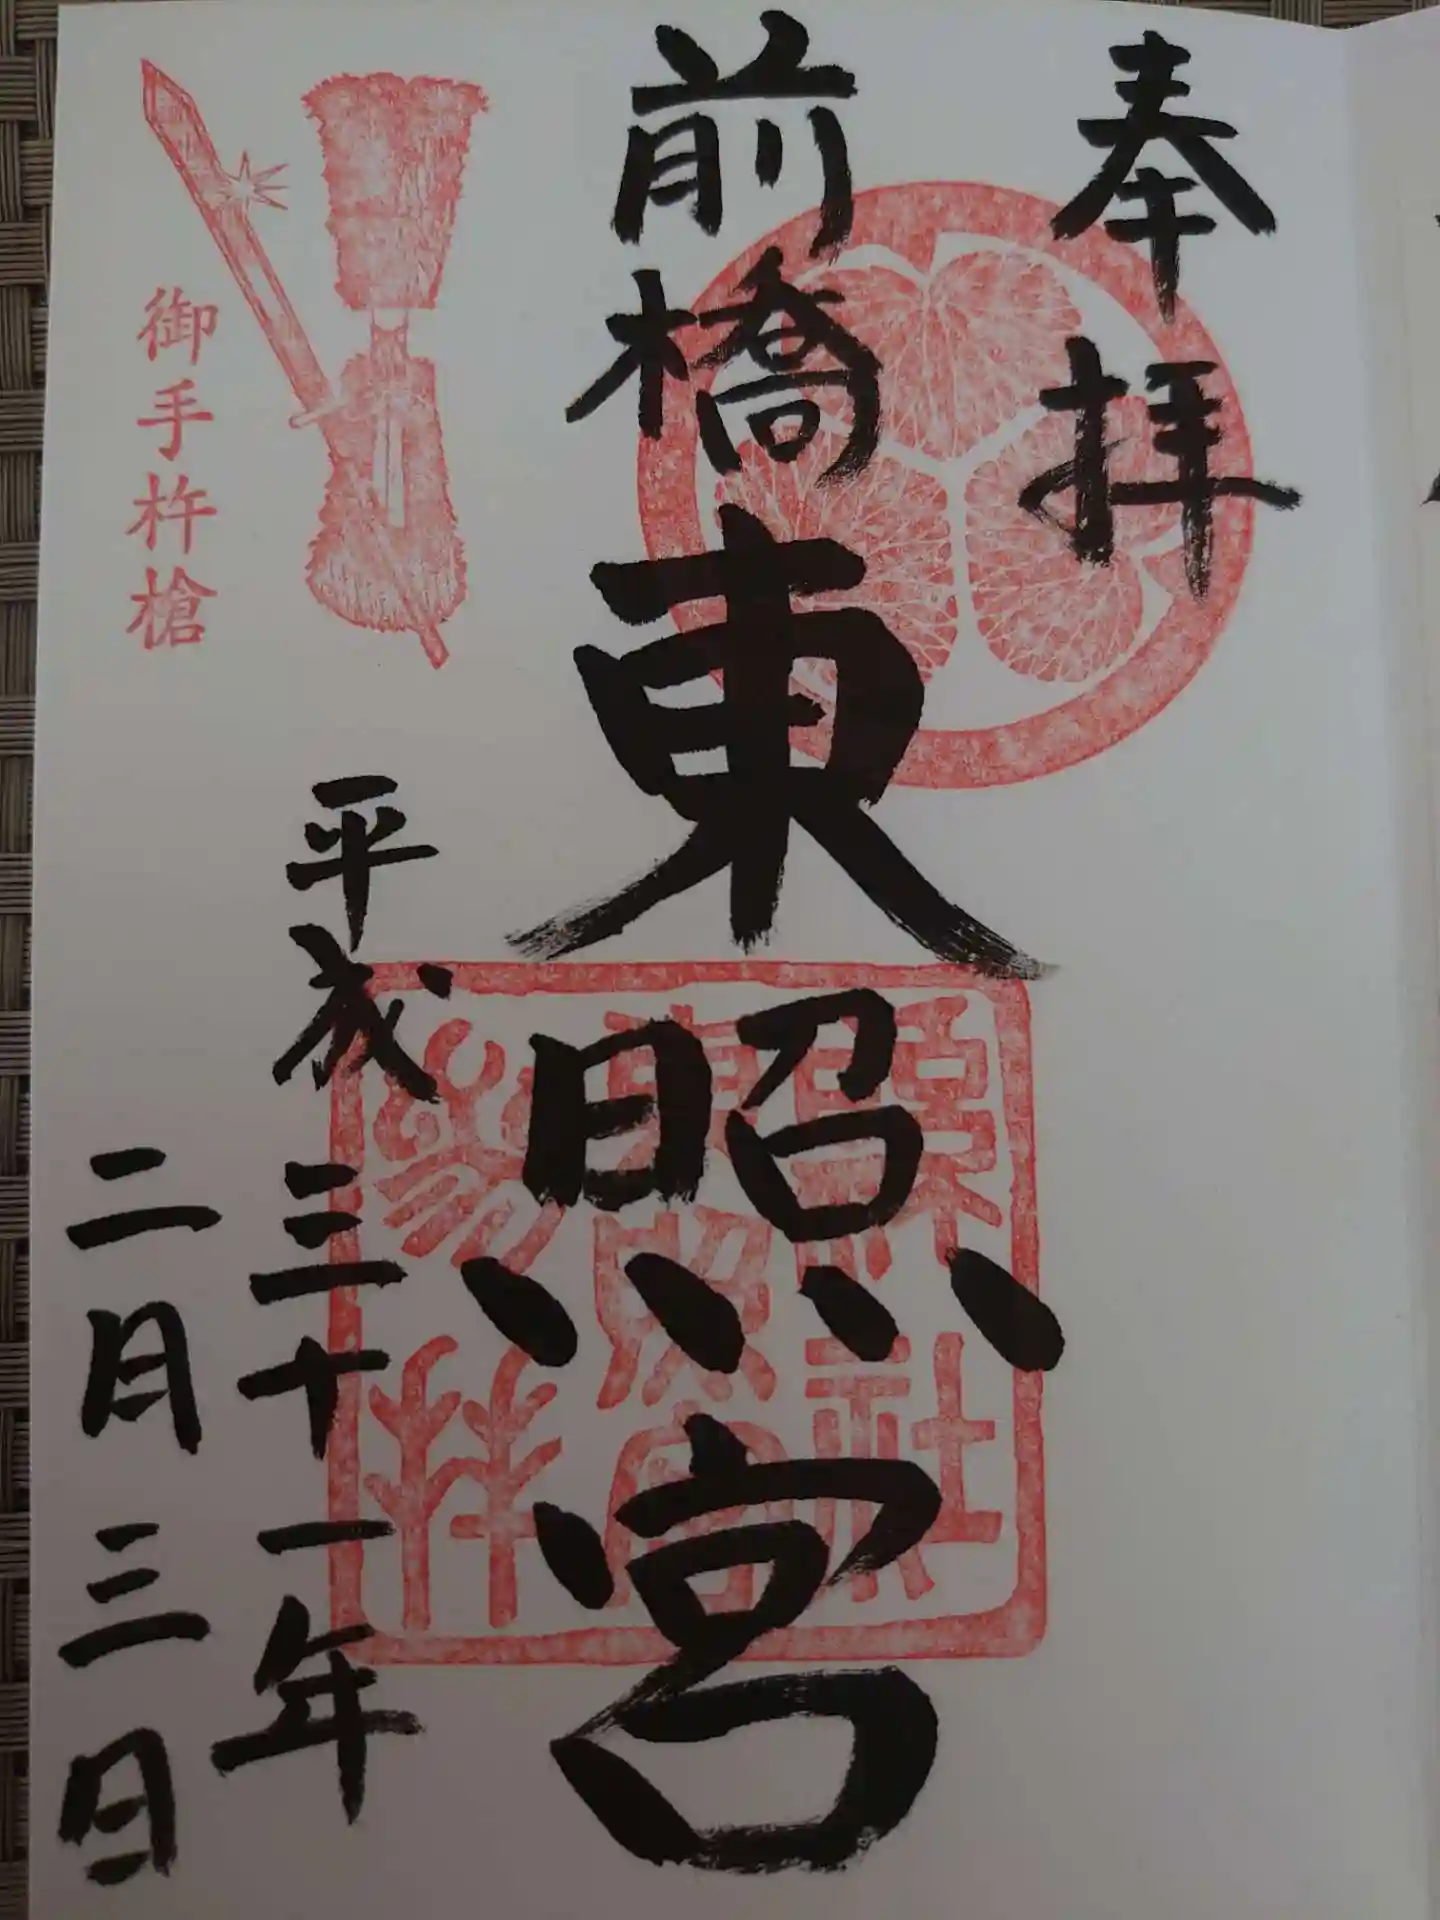 奉拝
前橋東照宮
御手杵槍
平成三十一年
二月三日
縣社
東照宮